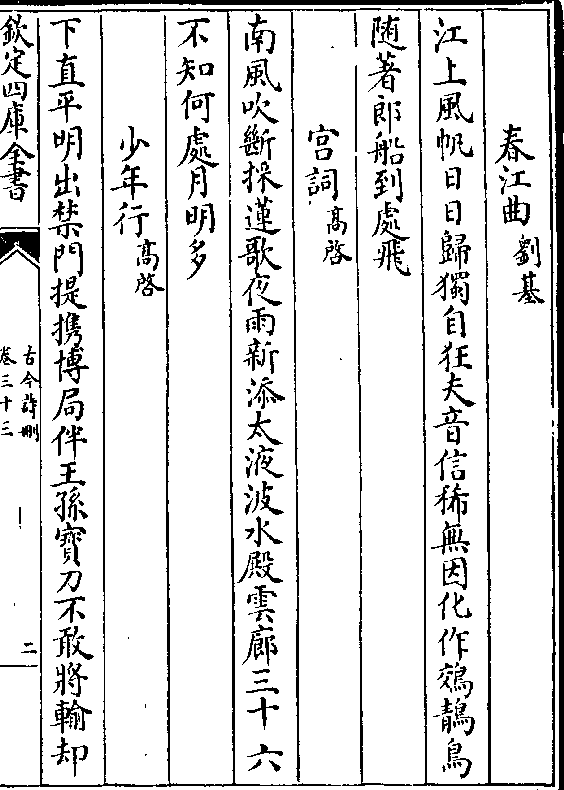 春江曲 劉基
江上風帆日日歸獨自狂夫音信稀無因化作鵁鶄鳥
随著郎船到處飛
宫詞 髙啓
南風吹斷採蓮歌夜雨新添太液波水殿雲廊三十六
不知何處月明多
少年行 髙啓
下直平明出禁門提携博局伴王孫寳刀不敢將輸却
欽定四庫全書
古今詩刪
卷三十三
二